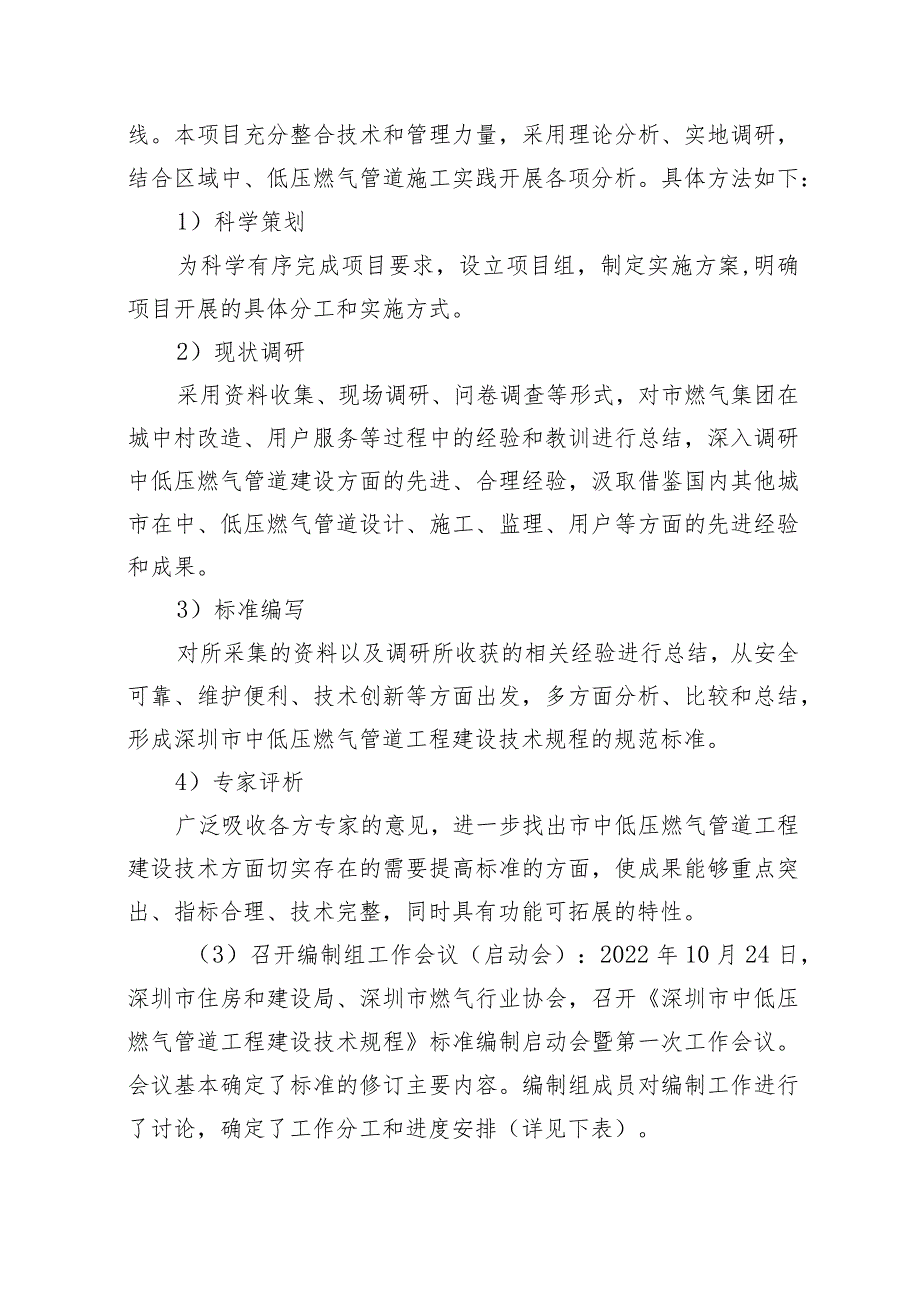 线。本项目充分整合技术和管理力量，采用理论分析、实地调研，
结合区域中、低压燃气管道施工实践开展各项分析。具体方法如下：
1）科学策划
为科学有序完成项目要求，设立项目组，制定实施方案,明确
项目开展的具体分工和实施方式。
2）现状调研
采用资料收集、现场调研、问卷调查等形式，对市燃气集团在
城中村改造、用户服务等过程中的经验和教训进行总结，深入调研
中低压燃气管道建设方面的先进、合理经验，汲取借鉴国内其他城
市在中、低压燃气管道设计、施工、监理、用户等方面的先进经验
和成果。
3）标准编写
对所采集的资料以及调研所收获的相关经验进行总结，从安全
可靠、维护便利、技术创新等方面出发，多方面分析、比较和总结，
形成深圳市中低压燃气管道工程建设技术规程的规范标准。
4）专家评析
广泛吸收各方专家的意见，进一步找出市中低压燃气管道工程
建设技术方面切实存在的需要提高标准的方面，使成果能够重点突
出、指标合理、技术完整，同时具有功能可拓展的特性。
（3）召开编制组工作会议（启动会）：2022 年 10 月 24 日，
深圳市住房和建设局、深圳市燃气行业协会，召开《深圳市中低压
燃气管道工程建设技术规程》标准编制启动会暨第一次工作会议。
会议基本确定了标准的修订主要内容。编制组成员对编制工作进行
了讨论，确定了工作分工和进度安排（详见下表）。